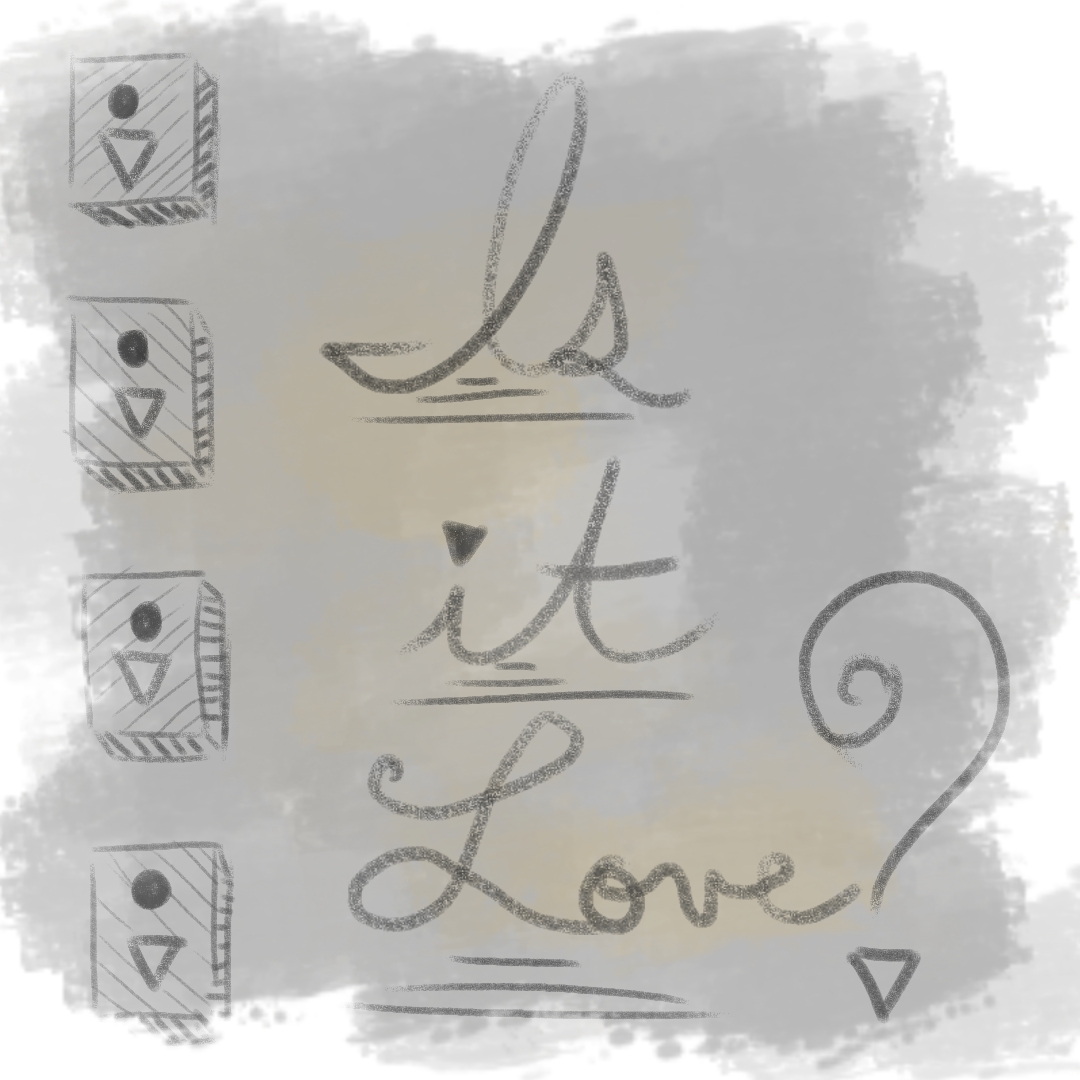 Is
it
Love?